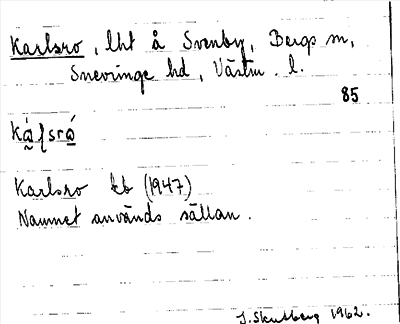 Karlsro, lht å Svenby, Bergs sn,
Snevringe hd, Västm. l.
85
Karlsro kb (1947)
Namnet används sällan.
J. Skutberg 1962.